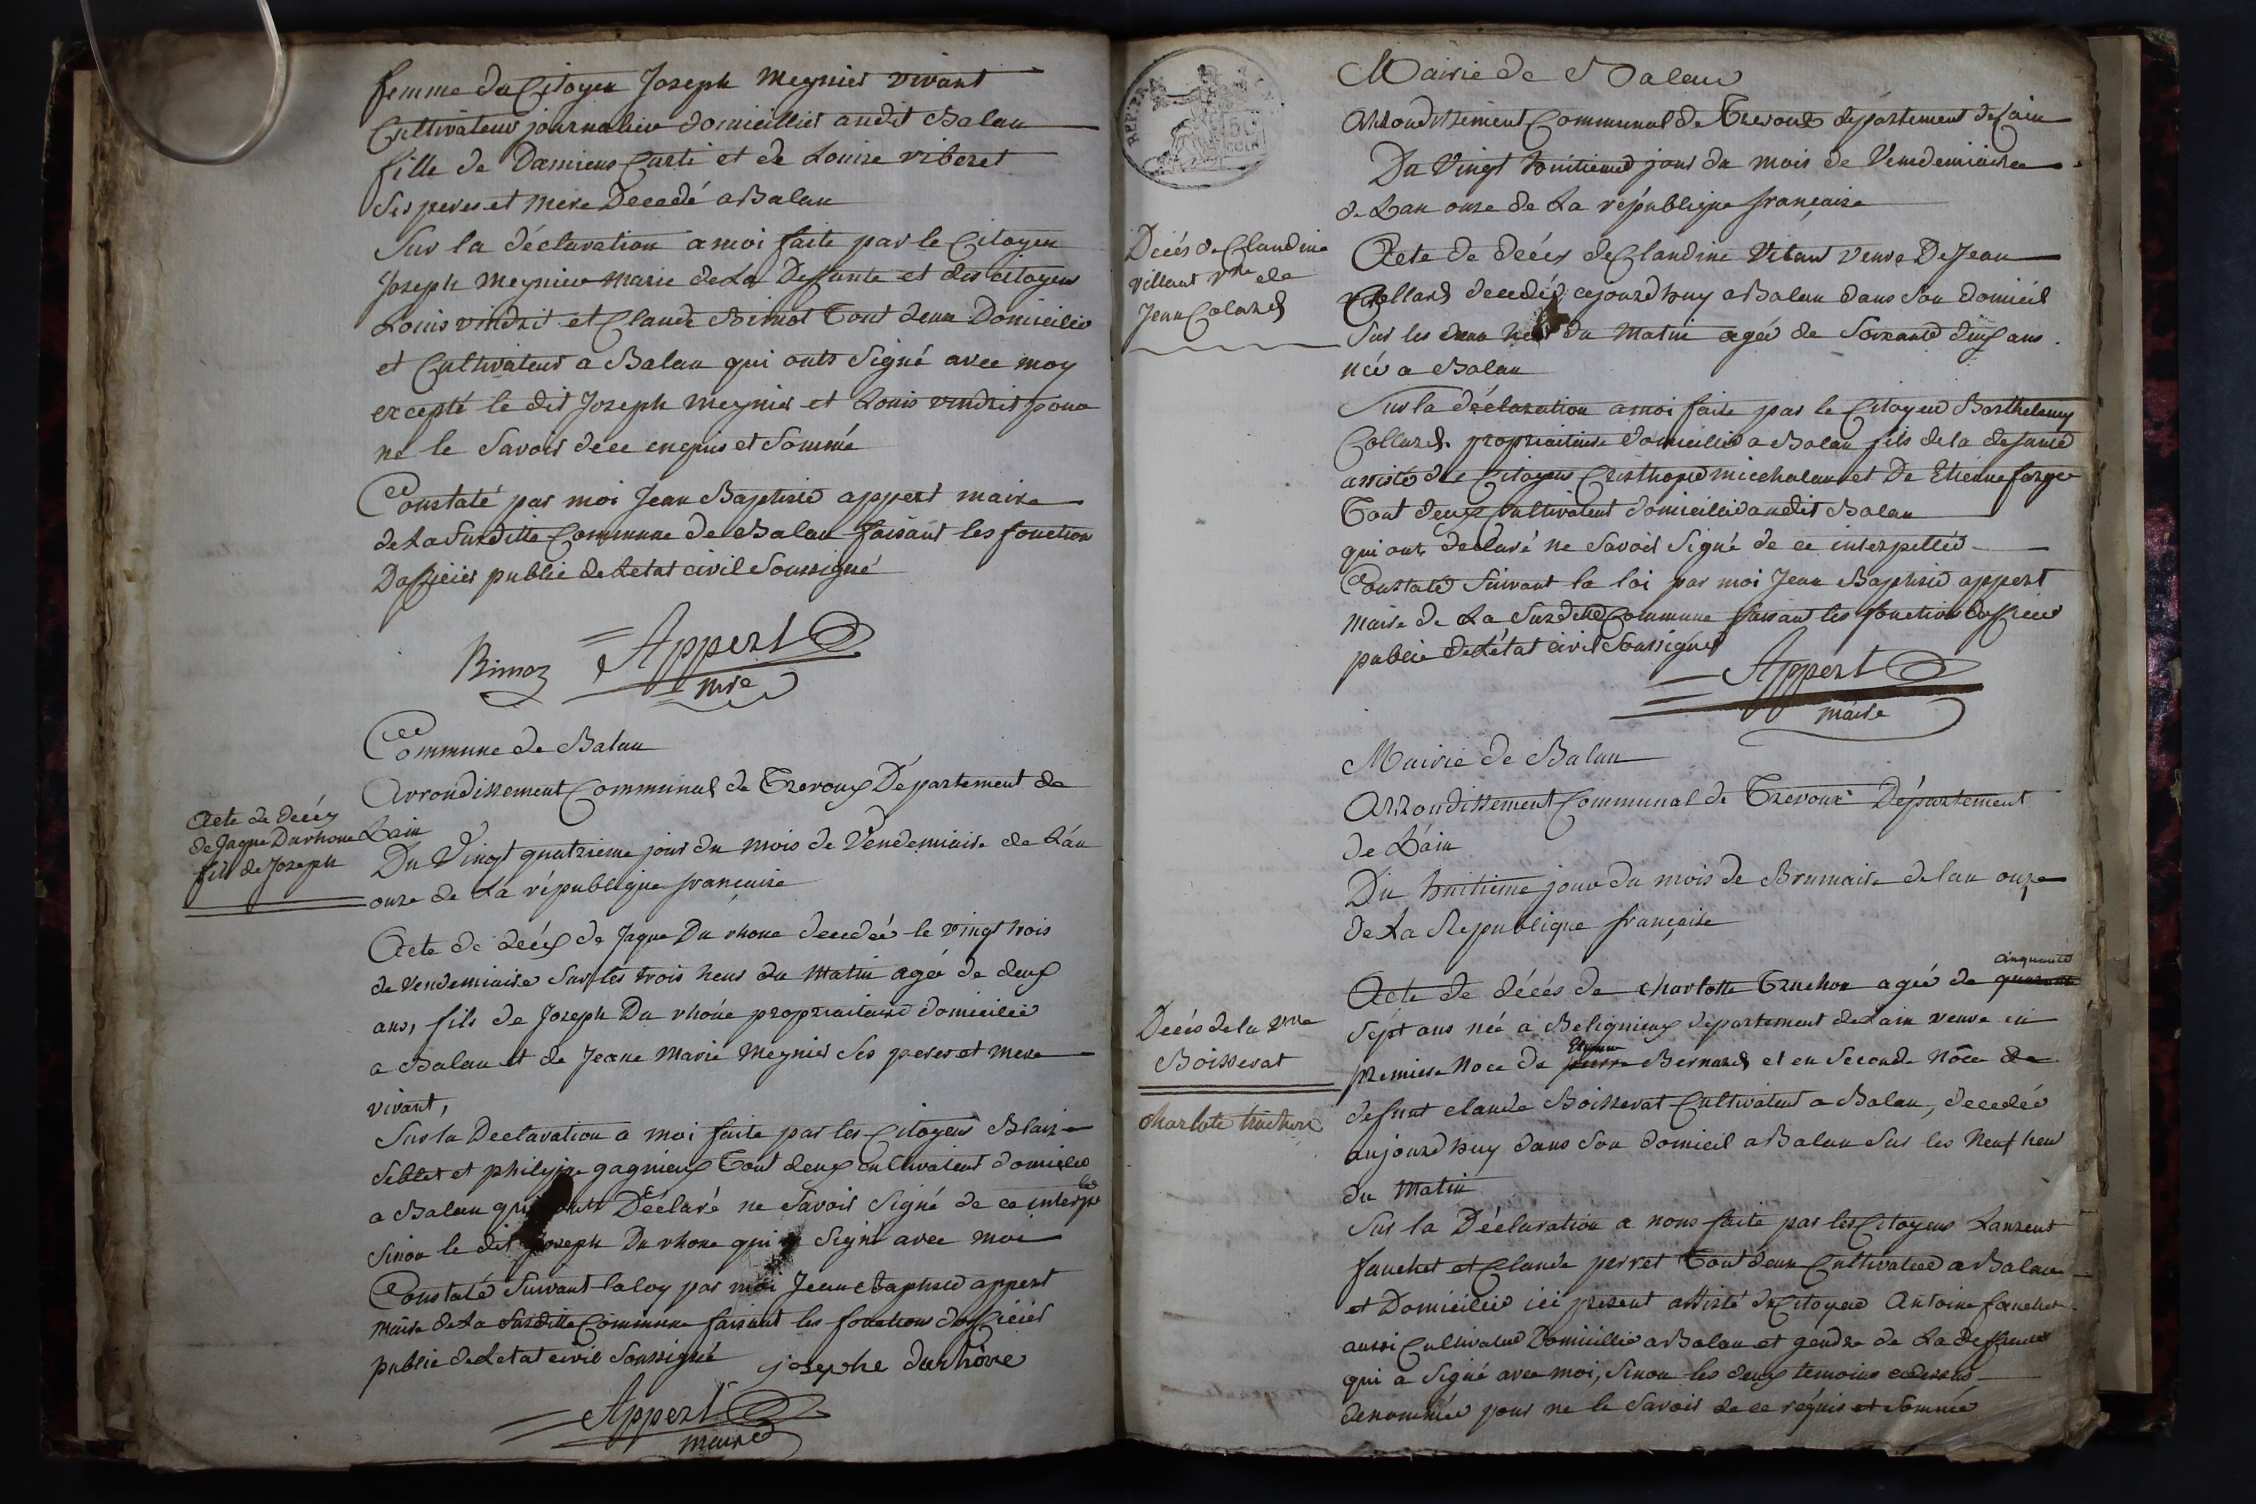 femme du Citoyen Joseph Meynier vivant
Cultivateur journalier domicillier audit Balan
fille de Damiens Curti et de Louise viberet
Ses peres et mere Decedé a Balan
Sur la déclaration a moi faite par le Citoyen
Joseph Meynier marie de La Defunte et des citoyens
Louis vindrit et Claude Bimot Tout deux Domicilié
et Cultivateur a Balan qui onts Signé avec moy
excepté le dit Joseph Meynier et Louis vindrit pour
ne le Savoir de ce enquis et Sommé
Constaté par moi Jean Baptiste appert maire
de La Surditte Commune de Balan faisant les fonction
Dofficier public de Letat civil Soussigné
Bimoz Appert
mre
Commune de Balan
Arrondissement Communal de Trevoux Département de
Lain
Acte de décés
de Jaque Durhone
fils de Joseph
Du Vingt quatrieme jour du mois de Vendemiaire de Lan
onze de La république francaise
Acte de décés de Jaque Du rhone decedée le vingt trois
de vendemiaire Sur les trois heur du Matin agée de deux
ans, fils de Joseph Du rhone propriaitaire domicilié
a Balan et de Jeane Marie Meynier Ses peres et mere
vivant,
Sur la Declaration a moi faite par les Citoyens Blaise
Siblet et philippe gagnieux Tout deux cultivateur domicilié
a Balan qui onts Déclaré ne Savoir Signé de ce interpelé
Sinon le dit Joseph Du rhone qui a Signé avec moi
Constaté Suivant la loy par moi Jean Baptiste appert
maire de La Surditte Commune faisant les fonctions dofficier
public de Letat civil Soussigné josephe durhône
Appert
maire
Mairie de Balan
Arrondissement Communal de Trevoux département de Lain
Du Vingt huitieme jour du mois de Vendemiaire
de Lan onze de La république française
Décés de Claudine
villant Vve de
Jean Colard
Acte de décés de Claudine Vitan veuve De Jean
Collard decedée cejourdhuy a Balan dans Son domicil
Sur les deux heur du Matin agée de Soixante dix ans
née a Balan
Sur la déclaration a moi faite par le Citoyen Barthelemy
Collard propriaitaire domicillié a Balan fils de la defunte
assisté des Citoyens Cristhophe michalan et De Etienne farge
Tout deux Cultivateur domicillié audit Balan
qui ont declaré ne Savoir Signé de ce interpellée
Constaté Suivant la loi par moi Jean Baptiste appert
maire de La Surditte Commune faisant les fonction dofficier
public de Létat civil Soussigné
Appert
maire
Mairie de Balan
Arrondissement Communal de Trevoux Département
de Lain
Du huitieme jour du mois de Brumaire de lan onze
de La Republique française
cinquante
Acte de décés de charlotte Truchon agée de quarante
Décés de la Vve
Boisserat
charlote truchon
Sept ans née a Beligneux departement de Lain veuve en
Etienne
premiere Noce de pierre Bernard et en Seconde Nôce de
defunt claude Boisserat Cultivateur a Balan, decedée
aujourdhuy dans Son domicil a Balan Sur les Neuf heur
du Matin
Sur la Déclaration a nous faite par les Citoyens Laurent
fauchet et Claude perret Tout deux Cultivateur a Balan
et Domicilié ici present assisté du Citoyen Antoine fauchet
aussi Cultivateur Domicillié a Balan et gendre de La deffunte
qui a Signé avec moi, Sinon les deux temoins cidessus
denommée pour ne le Savoir de ce réquis et Sommé